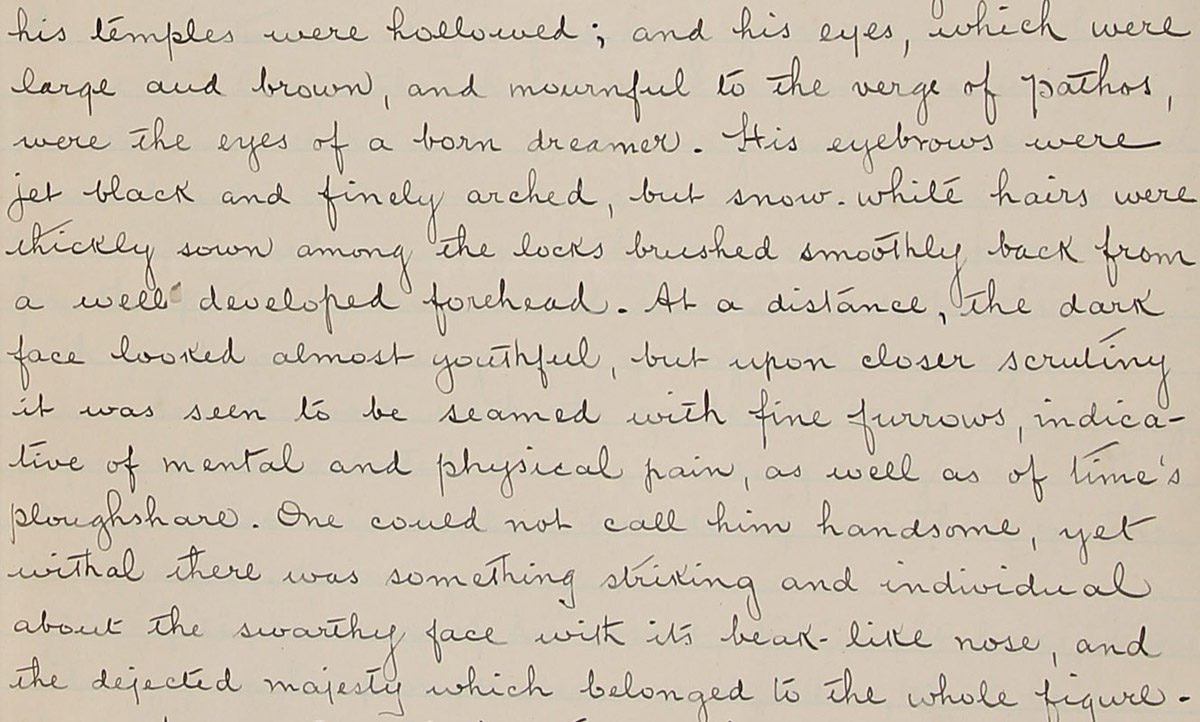 his temples were hollowed; and his eyes, which were
large and brown, and mournful to the verge of pathos,
were the eyes of a born dreamer. His eyebrows were
jet black and finely arched, but snow-white hairs were
thickly sown among the locks brushed smoothly back from
a well developed forehead. At a distance, the dark
face looked almost youthful, but upon closer scrutiny
it was seen to be seamed with fine furrows, indica-
tive of mental and physical pain, as well as of time's
ploughshare. One could not call him handsome, yet
withal there was something striking and individual
about the swarthy face with its beak-like nose, and
the dejected majesty which belonged to the whole figure.